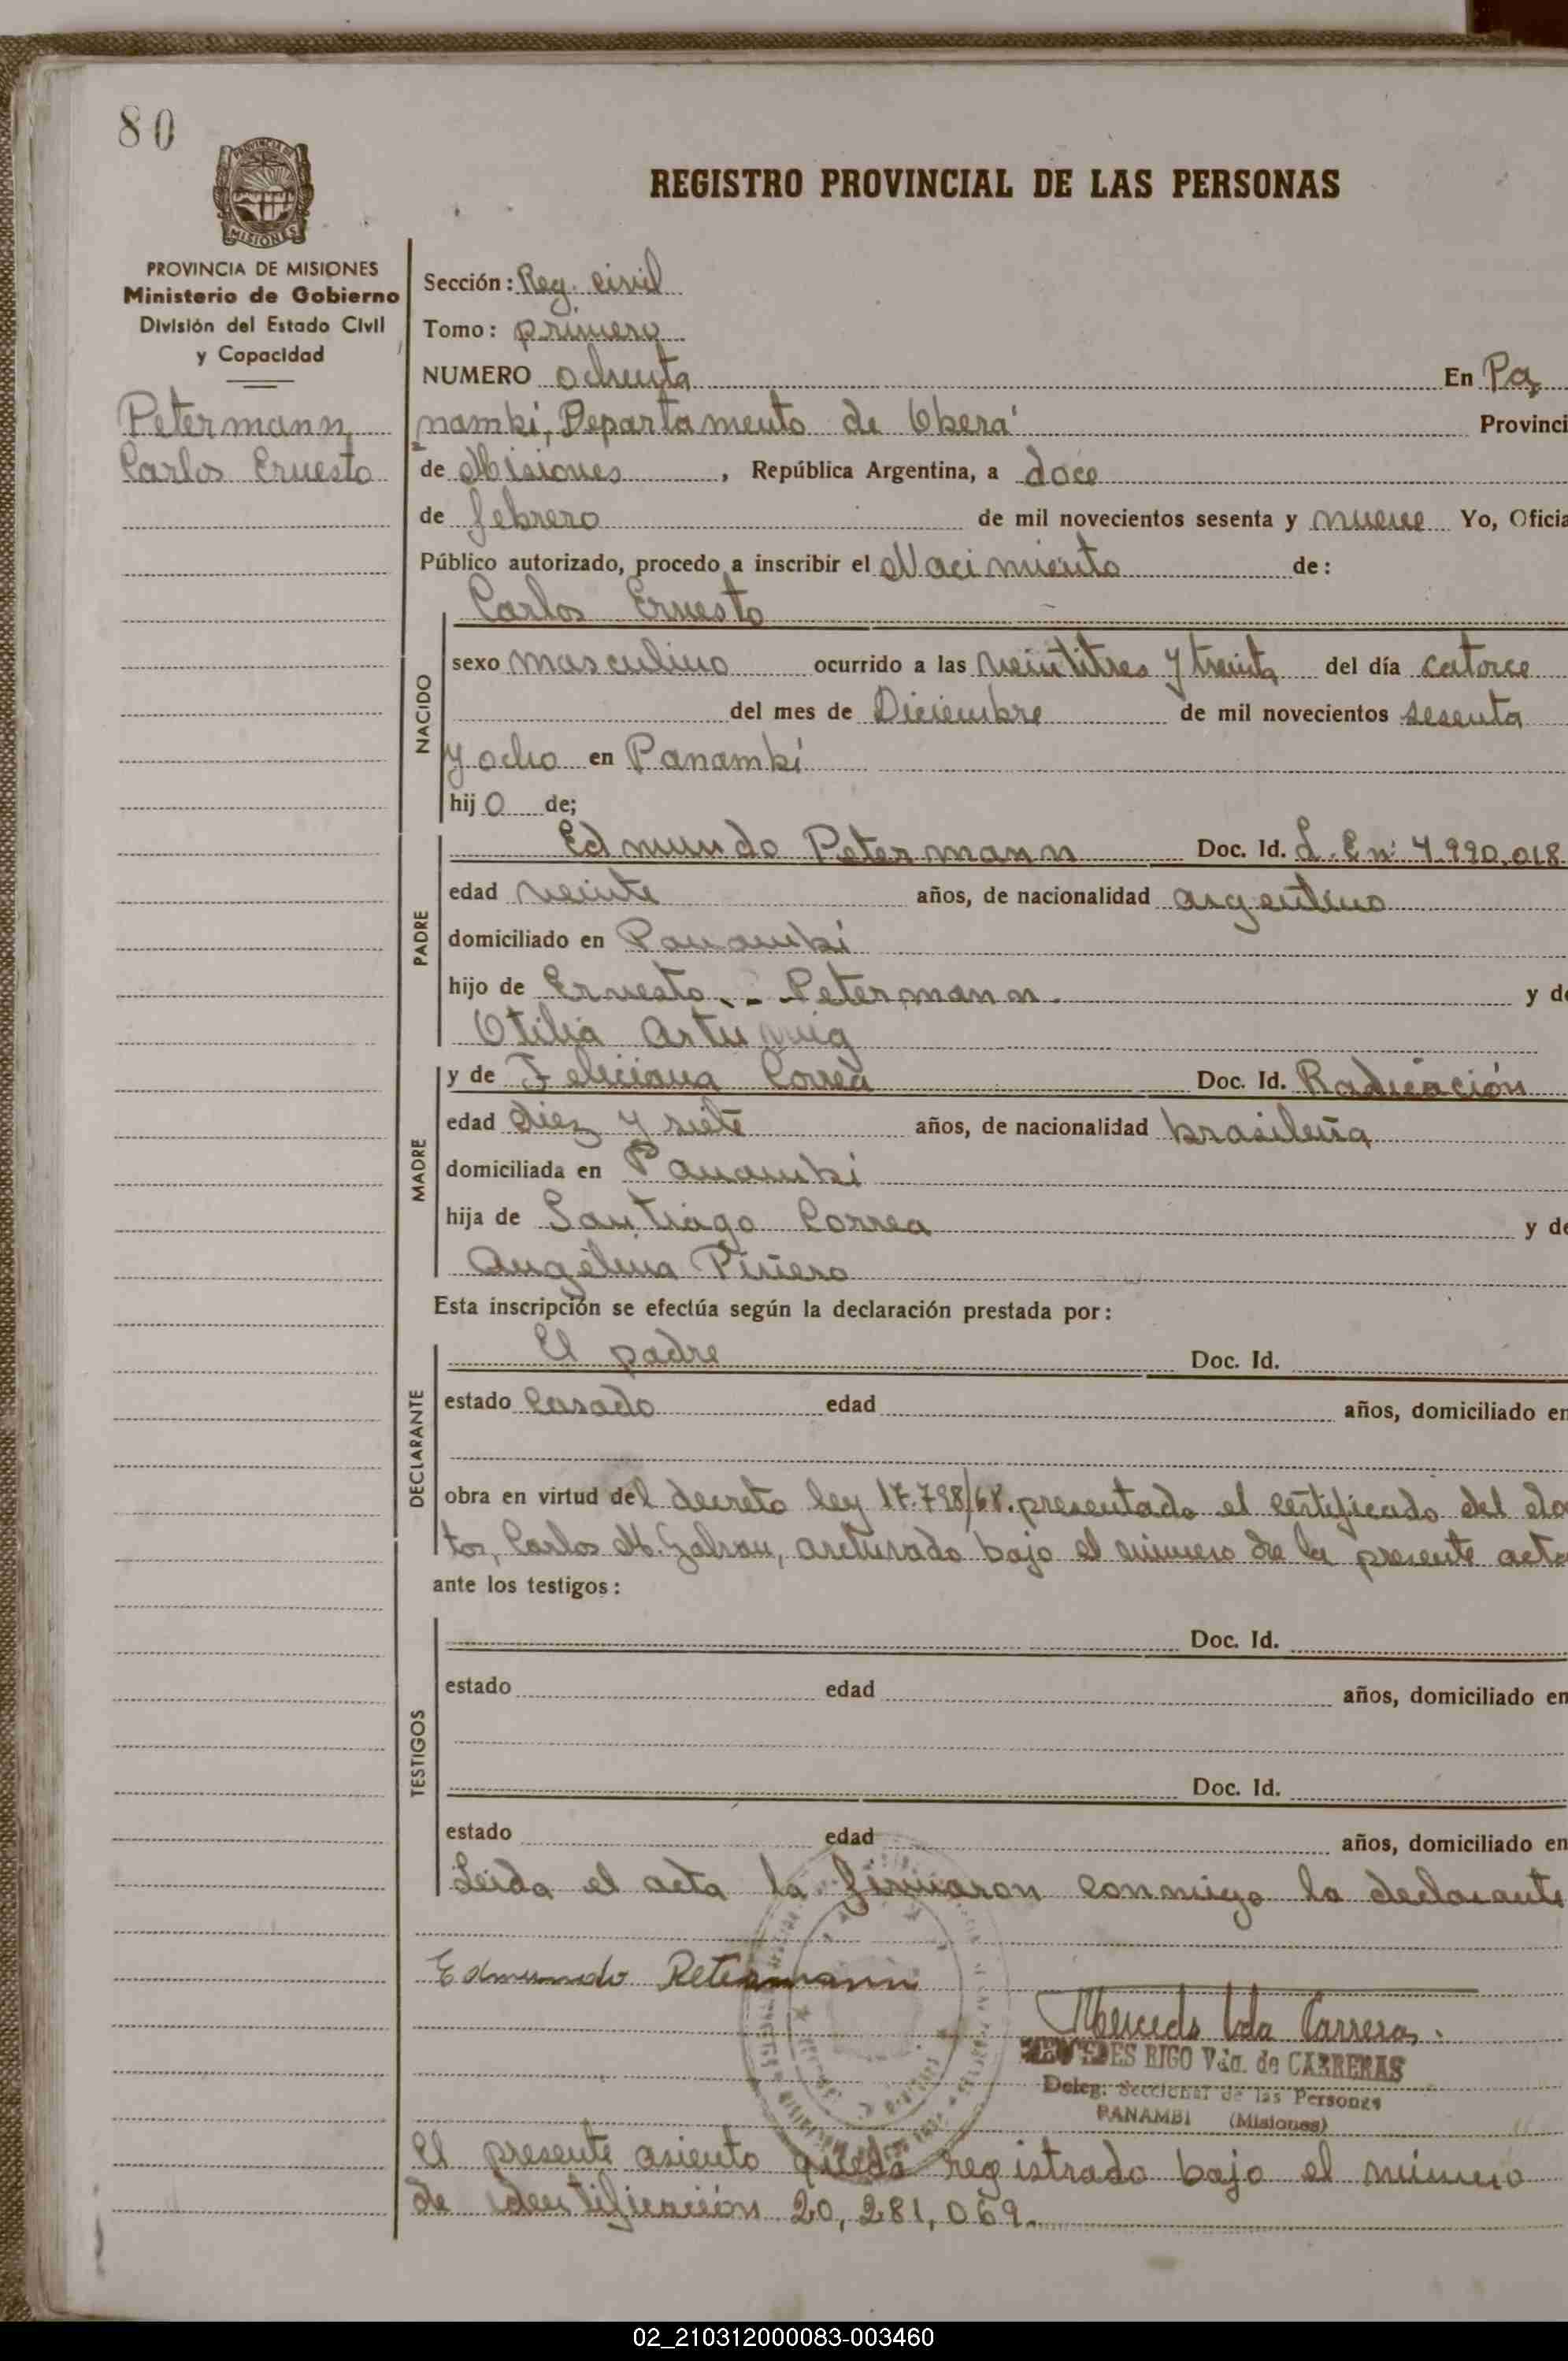 80
PROVINCIA DE MISIONES
REGISTRO PROVINCIAL DE LAS PERSONAS
PROVINCIA DE MISIONES
Ministerio de Gobierno
División del Estado Civil
y Capacidad
Petermann
Carlos Ernesto
Sección: Reg. civil
Tomo: primero
NUMERO ochenta En Pa
nambí, Departamento de Oberá Provinci
de Misiones, República Argentina, a doce
de febrero de mil novecientos sesenta y nueve Yo, Oficia
Público autorizado, procedo a inscribir el Nacimiento de:
Carlos Ernesto
NACIDO
sexo masculino ocurrido a las veintitres y treinta del día catorce
del mes de Diciembre de mil novecientos sesenta
y ocho en Panambí
hijo de;
PADRE
Edmundo Petermann Doc. Id. L. E nº 7.990.018
edad veinte años, de nacionalidad argentino
domiciliado en Panambí
hijo de Ernesto Petermann. y de
Otilia
MADRE
y de Feliciana Correa Doc. Id. Radicación
edad diez y siete años, de nacionalidad brasileña
domiciliada en Panambí
hija de Santiago Correa y de
Angélina Piñero
Esta inscripción se efectúa según la declaración prestada por:
DECLARANTE
El padre Doc. Id.
estado Casado edad años, domiciliado en
obra en virtud del decreto ley 17.798/68. presentado el certificado del
Carlos bajo el número de la presente acta
ante los testigos:
TESTIGOS
Doc. Id.
estado edad años, domiciliado en
Doc. Id.
estado edad años, domiciliado en
Leida el acta la firmaron conmigo la declarante
Edmundo Petermann
Mercedes Vda Carrera
MERCEDES RIGO Vda. de CARRERAS
Deleg. Seccional de las Personas
PANAMBI (Misiones)
El presente asiento queda registrado bajo el número
de identificación 20,281,069.
02_210312000083-003460